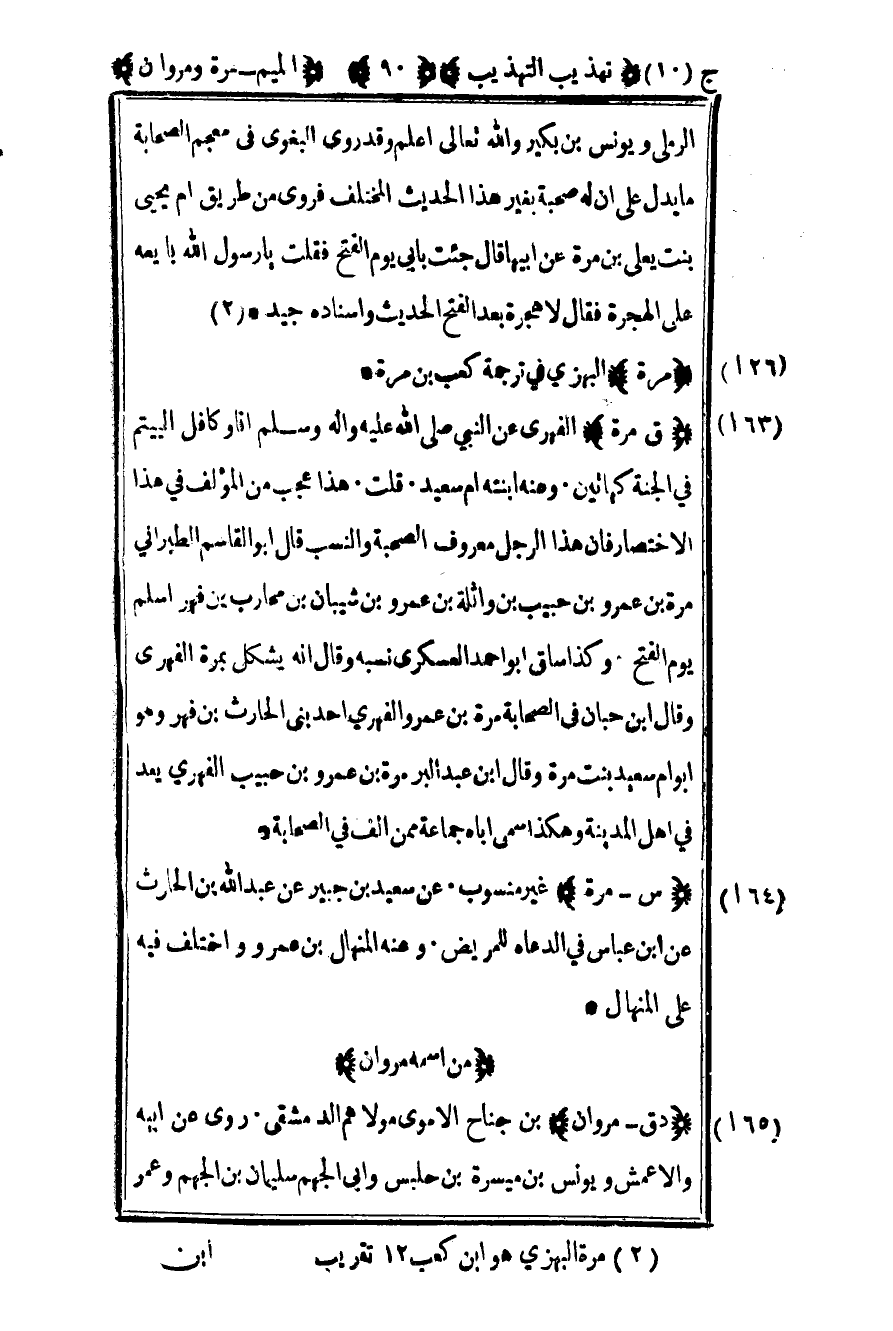 ج (١٠) ﴿ تهذيب التهذيب ﴾ ﴿ ٩٠ ﴾ ﴿ الميم ـ مرة ومروان ﴾
الرملى ويونس بن بكير والله تعالى اعلم وقد روى البغوى فى معجم الصحابة
مايدل على ان له صحبة بغير هذا الحديث المختلف فروى من طريق ام يحيى
بنت يعلى بن مرة عن ابيها قال جئت بابي يوم الفتح فقلت يارسول الله بايعه
على الهجرة فقال لا هجرة بعد الفتح الحديث واسناده جيد * (٢)
(١٢٦) ﴿ مرة ﴾ البهزي في ترجمة كعب بن مرة *
(١٦٣) ﴿ ق مرة ﴾ الفهرى عن النبي صلى الله عليه واله وسلم انا وكافل اليتيم
في الجنة كهاتين · وعنه ابنته ام سعيد · قلت · هذا عجب من المؤلف في هذا
الاختصار فان هذا الرجل معروف الصحبة والنسب قال ابو القاسم الطبراني
مرة بن عمرو بن حبيب بن واثلة بن عمرو بن شيبان بن محارب بن فهر اسلم
يوم الفتح · وكذا ساق ابو احمد العسكرى نسبه وقال انه يشكل بمرة الفهرى
وقال ابن حبان فى الصحابة مرة بن عمرو الفهري احد بنى الحارث بن فهر وهو
ابو ام سعيد بنت مرة وقال ابن عبد البر مرة بن عمرو بن حبيب الفهري يعد
في اهل المدينة وهكذا سمى اباه جماعة ممن الف في الصحابة *
(١٦٤) ﴿ س ـ مرة ﴾ غير منسوب · عن سعيد بن جبير عن عبد الله بن الحارث
عن ابن عباس في الدعاء للمريض · وعنه المنهال بن عمرو واختلف فيه
على المنهال *
﴿ من اسمه مروان ﴾
(١٦٥) ﴿ دق ـ مروان ﴾ بن جناح الاموى مولاهم الدمشقى · روى عن ابيه
والاعمش ويونس بن ميسرة بن حلبس وابى الجهم سليمان بن الجهم وعمر
(٢) مرة البهزي هو ابن كعب ١٢ تقريب ابن